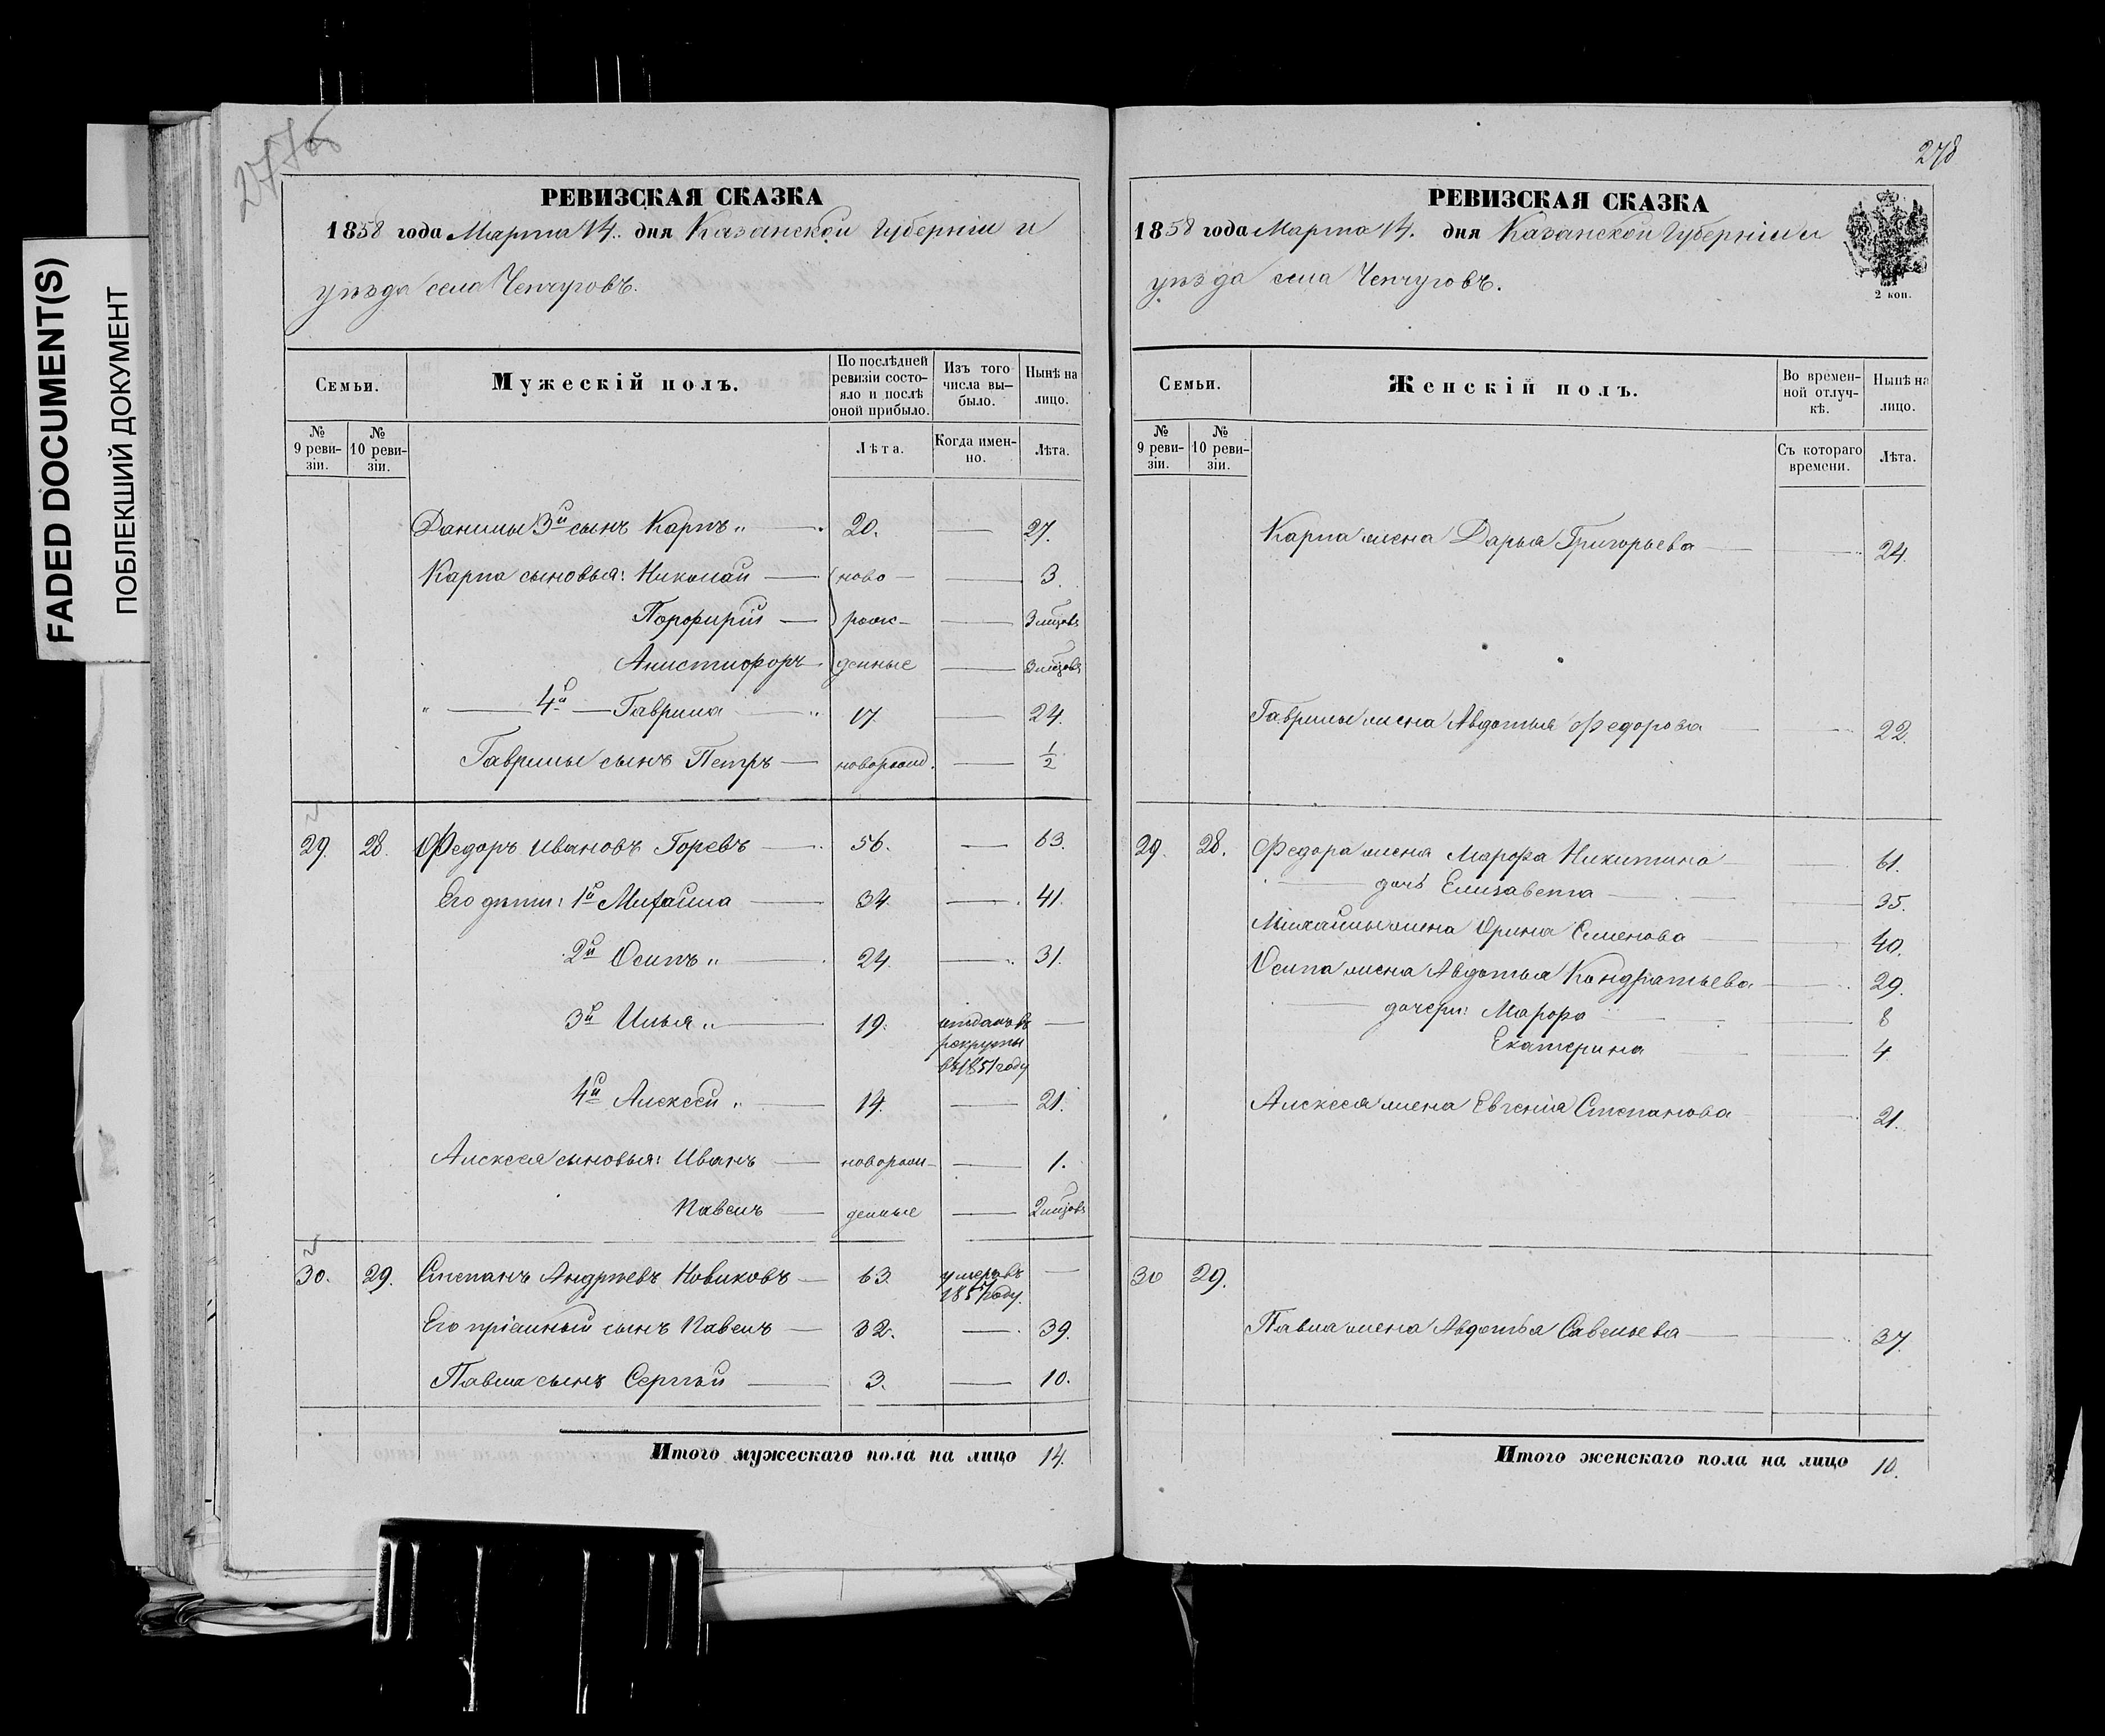 FADED DOCUMENT(S)
ПОБЛЕКШИЙ ДОКУМЕНТ
277об
РЕВИЗСКАЯ СКАЗКА
1858 года Марта 14. дня Казанской Губерніи и
уѣзда села Чепчуговъ.
Семьи.
Мужескій полъ.
По послѣдней ревизіи состояло и послѣ оной прибыло.
Изъ того числа выбыло.
Нынѣ на лицо.
№ 9 ревизіи.
№ 10 ревизіи.
Лѣта.
Когда именно.
Лѣта.
Данилы 3й сынъ Карпъ 20. 27.
Карпа сыновья: Николай ново- 3.
Порфирій рож- 3 мцовъ
Анистифоръ денные 3 мцовъ
" 4й Гаврила " 17 24.
Гаврилы сынъ Петръ новорожд. 1/2
29. 28. Федоръ Ивановъ Горевъ 56. 63.
Его дѣти: 1й Михайла 34. 41.
2й Осипъ " 24. 31.
3й Илья " 19. отданъ въ рекруты въ 1851 году
4й Алексей " 14. 21.
Алексея сыновья: Иванъ новорож- 1.
Павелъ денные 2 мцовъ
30. 29. Степанъ Андреевъ Новиковъ 63. умеръ въ 1857 году.
Его пріемный сынъ Павелъ 32. 39.
Павла сынъ Сергѣй 3. 10.
Итого мужескаго пола на лицо 14.
278
РЕВИЗСКАЯ СКАЗКА
1858 года Марта 14. дня Казанской Губерніи и
уѣзда села Чепчуговъ.
2 коп.
Семьи.
Женскій полъ.
Во временной отлучкѣ.
Нынѣ на лицо.
№ 9 ревизіи.
№ 10 ревизіи.
Съ котораго времени.
Лѣта.
Карпа жена Дарья Григорьева 24.
Гаврилы жена Авдотья Федорова 22.
29. 28. Федора жена Марфа Никитина 61.
дочь Елизавета 35.
Михайлы жена Орина Семенова 40.
Осипа жена Авдотья Кондратьева 29.
дочери: Марфа 8
Екатерина 4
Алексея жена Евгенія Степанова 21.
30 29.
Павла жена Авдотья Савельева 37.
Итого женскаго пола на лицо 10.